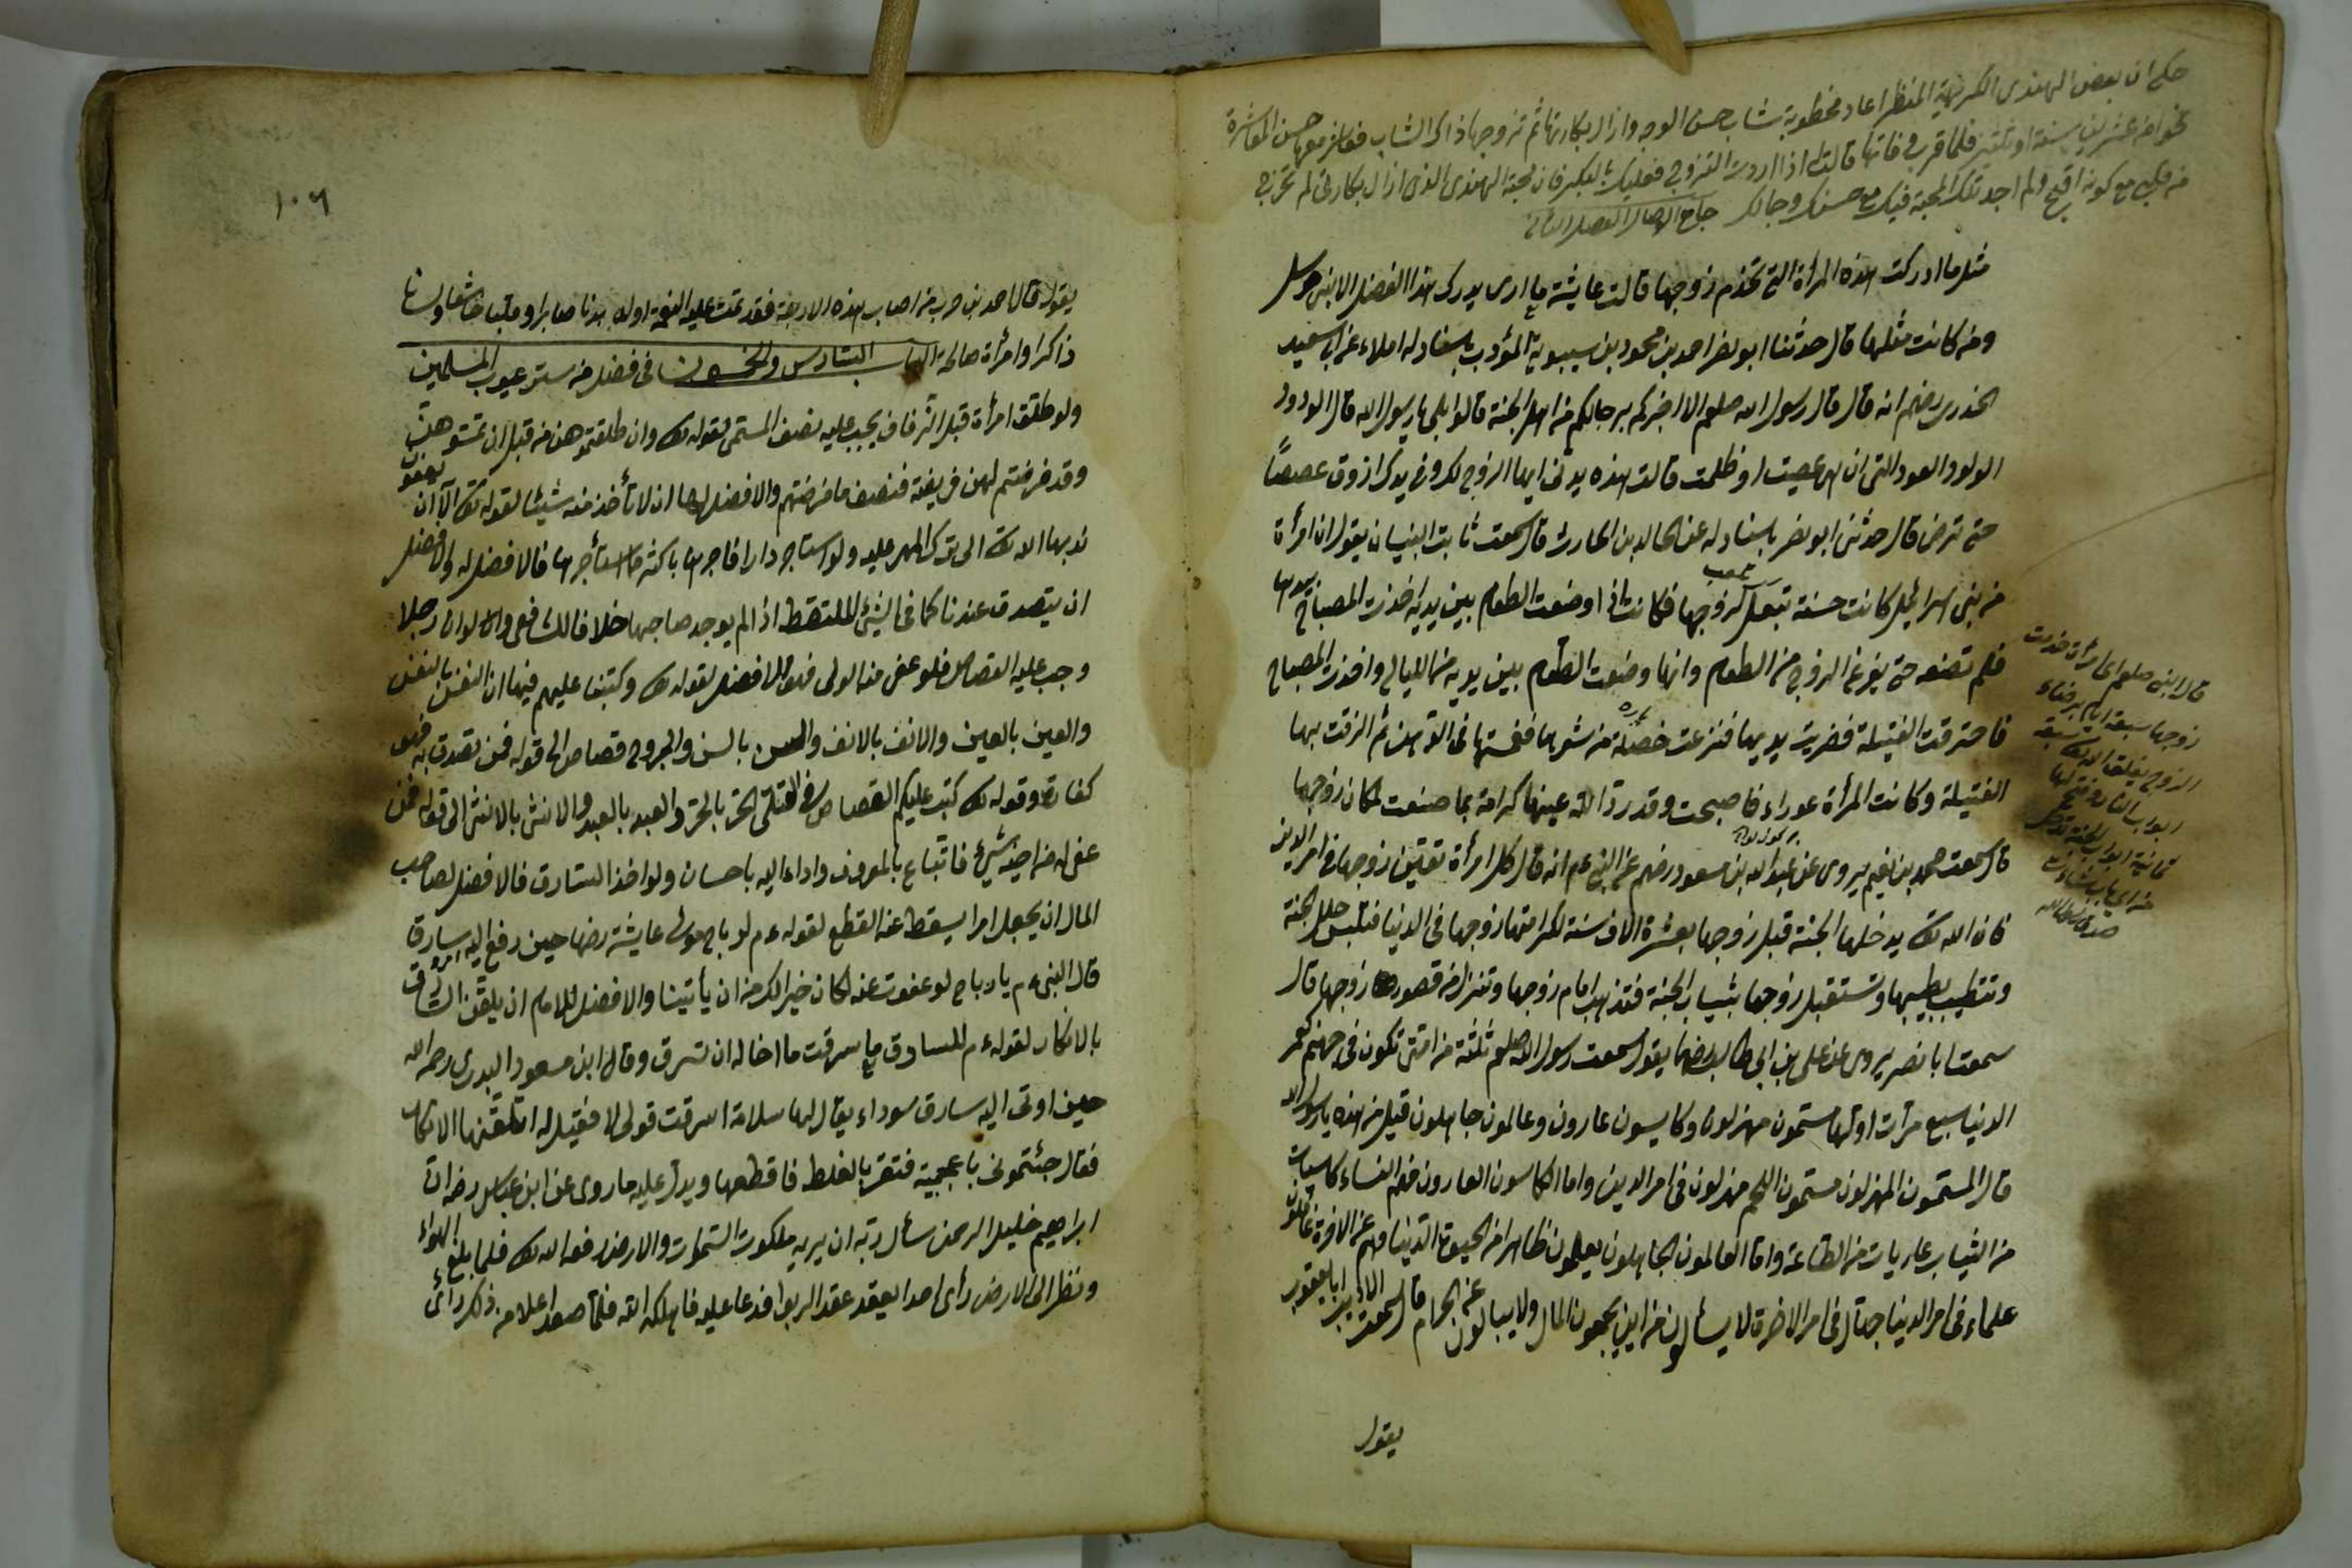 حكى ان بعض الهندى الكريهة المنظر اعاد مخطوبة شاب حسن الوجه وازال بكارتها ثم تزوجها ذاك الشاب فعاش معها حسن المعاشرة
نحوا من عشرين سنة او ثلثين فلما قرب وفاتها قالت اذا اردت التزوج فعليك بالبكر فان محبة الهندى الذى ازال بكارتى لم تخرج
من قلبى مع كونه اقبح ولم اجد تلك المحبة فيك مع حسنك وجمالك
مثل ما ادركت هذه المرأة التى تخدم زوجها قالت عايشة ما ارى يدرك هذا الفضل الا بنى مرسل
ومن كانت مثلها قال حدثنا ابو نصر احمد بن محمود بن سيبويه المؤدب باسناد له املاء عن ابى سعيد
الخدرى رضهم انه قال قال رسول الله صلعم الا اخبركم برجالكم من اهل الجنة قالوا بلى يا رسول الله قال الودود
الولود العود التى ان هى عصيت او ظلمت قالت هذه يدى ايها الزوج لك وفى يدك لا ذوق غمضا
حتى ترضى قال حدثنى ابو نصر باسناد له عن خالد بن الحارث قال سمعت ثابت البنيان يقول ان امرأة
من بنى اسرائيل كانت حسنة تبعل لزوجها فكانت اذا وضعت الطعام بين يديه اخذت المصباح بيدها
فلم تضعه حتى يفرغ الزوج من الطعام وانها وضعت الطعام بين يديه من الليالى واخذت المصباح
فاحترقت الفتيلة فضربت يديها فنزعت خصلة من شعرها ففتلتها فى الدهن ثم الزقت بها
الفتيلة وكانت المرأة عوراء فاصبحت وقد رد الله عينها كرامة بما صنعت لمكان زوجها
قال سمعت محمد بن نعيم يروى عن عبد الله بن مسعود رضهم عن النبى عم انه قال كل امرأة تعين زوجها فى امر الدين
فان الله تعالى يدخلها الجنة قبل زوجها بعشرة الاف سنة لكرامتها زوجها فى الدنيا فتلبس حلل الجنة
وتتطيب بطيبها وتستقبل زوجها بثياب الجنة فتذهب امام زوجها وتنزل من قصور زوجها قال
سمعت ابا نصر يروى عن على بن ابى طالب رضهما يقول سمعت رسول الله صلعم ثلثة من امتى تكون فى جهنم كعمر
الدنيا سبع مرات اولها مستمون مهزلون وكاسيون عارون وعالمون جاهلون قيل من هذه يا رسول الله
قال المستمون المهزلون مستمون اللحم مهزلون فى امر الدين واما الكاسون العارون فهم النساء كاسيات
من الثياب عاريات من الطاعة واما العالمون الجاهلون يعلمون ظاهرا من الحيوة الدنيا وهم عن الاخرة غافلون
علماء فى امر الدنيا جهال فى امر الاخرة لا يسألون من اين يجمعون المال ولا يبالون عن الحرام قال سمعت ابا يعقوب
يقول
قال النبى صلعم ايما امرأة خدمت
زوجها سبعة ايام برضاء
الزوج يغلق الله تعالى سبعة
ابواب النار وفتح لها
ثمانية ابواب الجنة تدخل
من اى باب شاءت
صدق رسول الله
١٠٦
يقول قال احمد بن حرب من اصاب هذه الاربعة فقد تمت عليه النعمة اوله بدنا صابرا وقلبا خاشعا ولسانا
ذاكرا وامرأة صالحة الباب السادس والخمسون فى فضل من ستر عيوب المسلمين
ولو طلقت امرأة قبل الزفاف يجب عليه نصف المسمى لقوله تعالى وان طلقتموهن من قبل ان تمسوهن
وقد فرضتم لهن فريضة فنصف ما فرضتم والافضل لها ان لا تأخذ منه شيئا لقوله تعالى الا ان يعفون
ندبها الله تعالى الى ترك المهر عليه ولو استاجر دارا فاجرها باكثر مما استأجرها فالافضل له
ان يتصدق عندنا كما فى الشئ الملتقط اذا لم يوجد صاحبها خلافا للشافعى ولو ان رجلا
وجب عليه القصاص فلو عفى منه الولى فهو الافضل لقوله تعالى وكتبنا عليهم فيها ان النفس بالنفس
والعين بالعين والانف بالانف والسن بالسن والجروح قصاص الى قوله فمن تصدق به فهو
كفارة وقوله تعالى كتب عليكم القصاص فى القتلى الحر بالحر والعبد بالعبد والانثى بالانثى الى قوله فمن
عفى له من اخيه شئ فاتباع بالمعروف واداء اليه باحسان ولو اخذ السارق فالافضل لصاحب
المال ان يجعل امرا يسقط عنه القطع لقوله عم لرباح مولى عايشة رضها حين رفع اليه سارقا
قال النبى عم يا رباح لو عفوت عنه لكان خيرا لك من ان يأتينا والافضل للامام ان يلقن السارق
بالانكار لقوله عم للسارق ما سرقت ما اخاله ان تسرق وقال ابن مسعود البدرى رحمه الله
حين اوتى اليه سارق سوداء يقال لها سلامة اسرقت قولى لا فقيل له اتلقنها الانكار
فقال جئتمونى باعجمية فتقر بالغلط فاقطعها ويدل عليه ما روى عن ابن عباس رضه ان
ابراهيم خليل الرحمن سأل ربه ان يريه ملكوت السموات والارض رفعه الله تعالى فلما بلغ الهواء
ونظر الى الارض رأى احدا يعقد عقد الربوا فدعا عليه فاهلكه الله فلما صعد اعلا من ذلك رأى